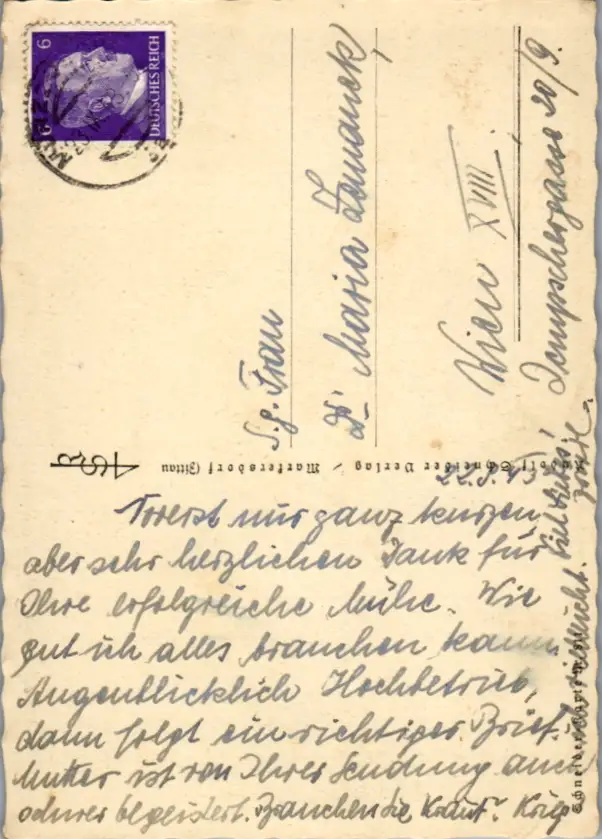 6
DEUTSCHES REICH
S.g. Frau
Dr Maria Zemanek,
Wien XVIII.
20/9.
Rudolf Schneider Verlag / Markersdorf (Zittau
22.9.43
Vorerst nur ganz kurzen,
aber sehr herzlichen Dank für
Ihre erfolgreiche Mühe. Wie
gut ich alles brauchen kann.
Augenblicklich Hochbetrieb,
dann folgt ein richtiger Brief.
Mutter ist von Ihrer Sendung auch
begeistert. Brauchen Sie Kraut?
vielleicht.